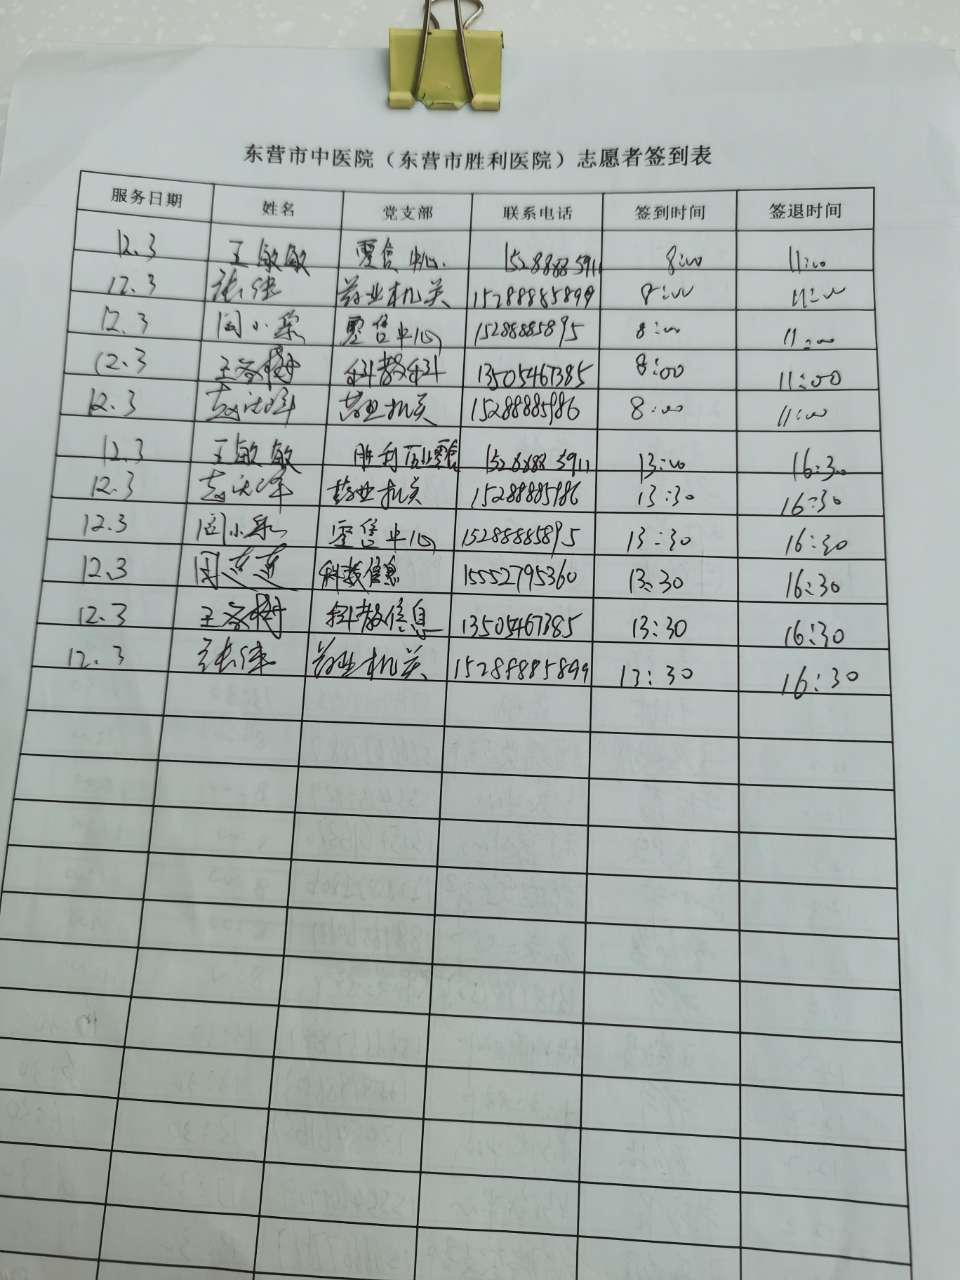 东营市中医院（东营市胜利医院）志愿者签到表
服务日期 姓名 党支部 联系电话 签到时间 签退时间
12.3 王敏敏 零售中心 15288885911 8:00 11:00
12.3 张佳 药业机关 15288885899 8:00 11:00
12.3 闫小泉 零售中心 15288885895 8:00 11:00
12.3 王 科教科 13505467385 8:00 11:00
12.3 药业机关 15288885986 8:00 11:00
12.3 王敏敏 胜利 零售 15288885911 13:00 16:30
12.3 药业机关 15288885986 13:30 16:30
12.3 闫小泉 零售中心 15288885895 13:30 16:30
12.3 周燕燕 科教信息 15552795360 13:30 16:30
12.3 王 科教信息 13505467385 13:30 16:30
12.3 张佳 药业机关 15288885899 13:30 16:30